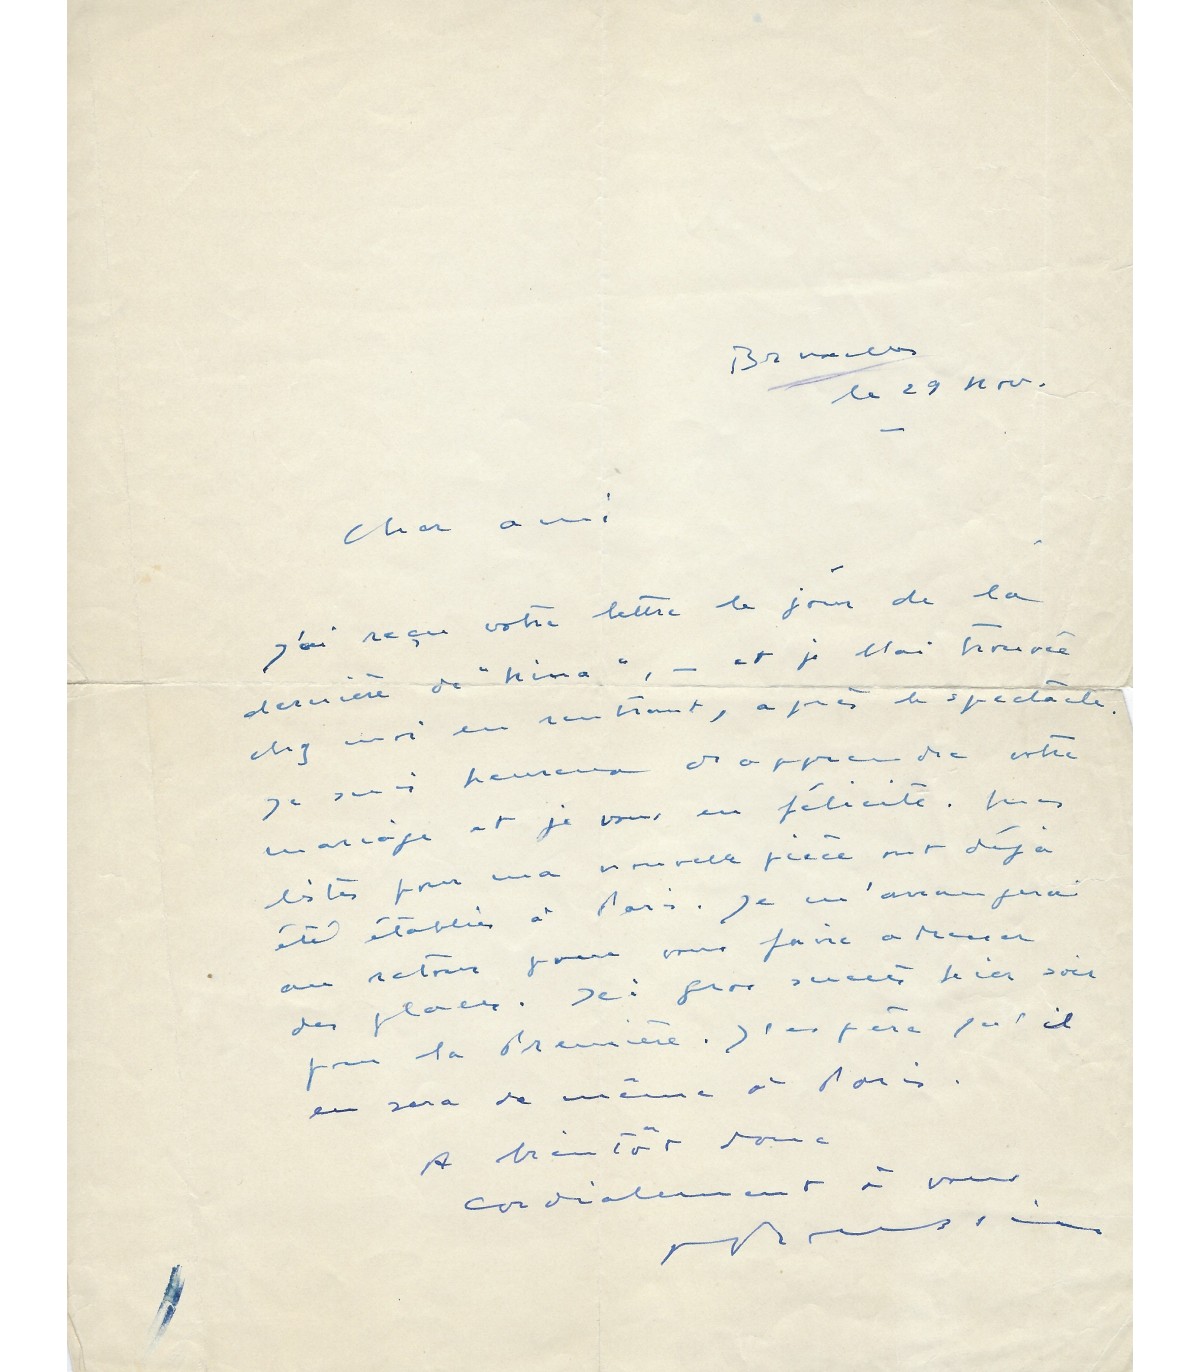 Bruxelles
le 29 Nov.
Cher ami
J'ai reçu votre lettre le jour de la
dernière de "Nina", – et je l'ai trouvée
chez moi en rentrant, après le spectacle.
Je suis heureux d'apprendre votre
mariage et je vous en félicite. Mes
listes pour ma nouvelle pièce ont déjà
été établies à Paris. Je m'arrangerai
au retour pour vous faire adresser
des places. Ici gros succès hier soir
pour la Première. J'espère qu'il
en sera de même à Paris.
A bientôt donc
cordialement à vous
Roussin